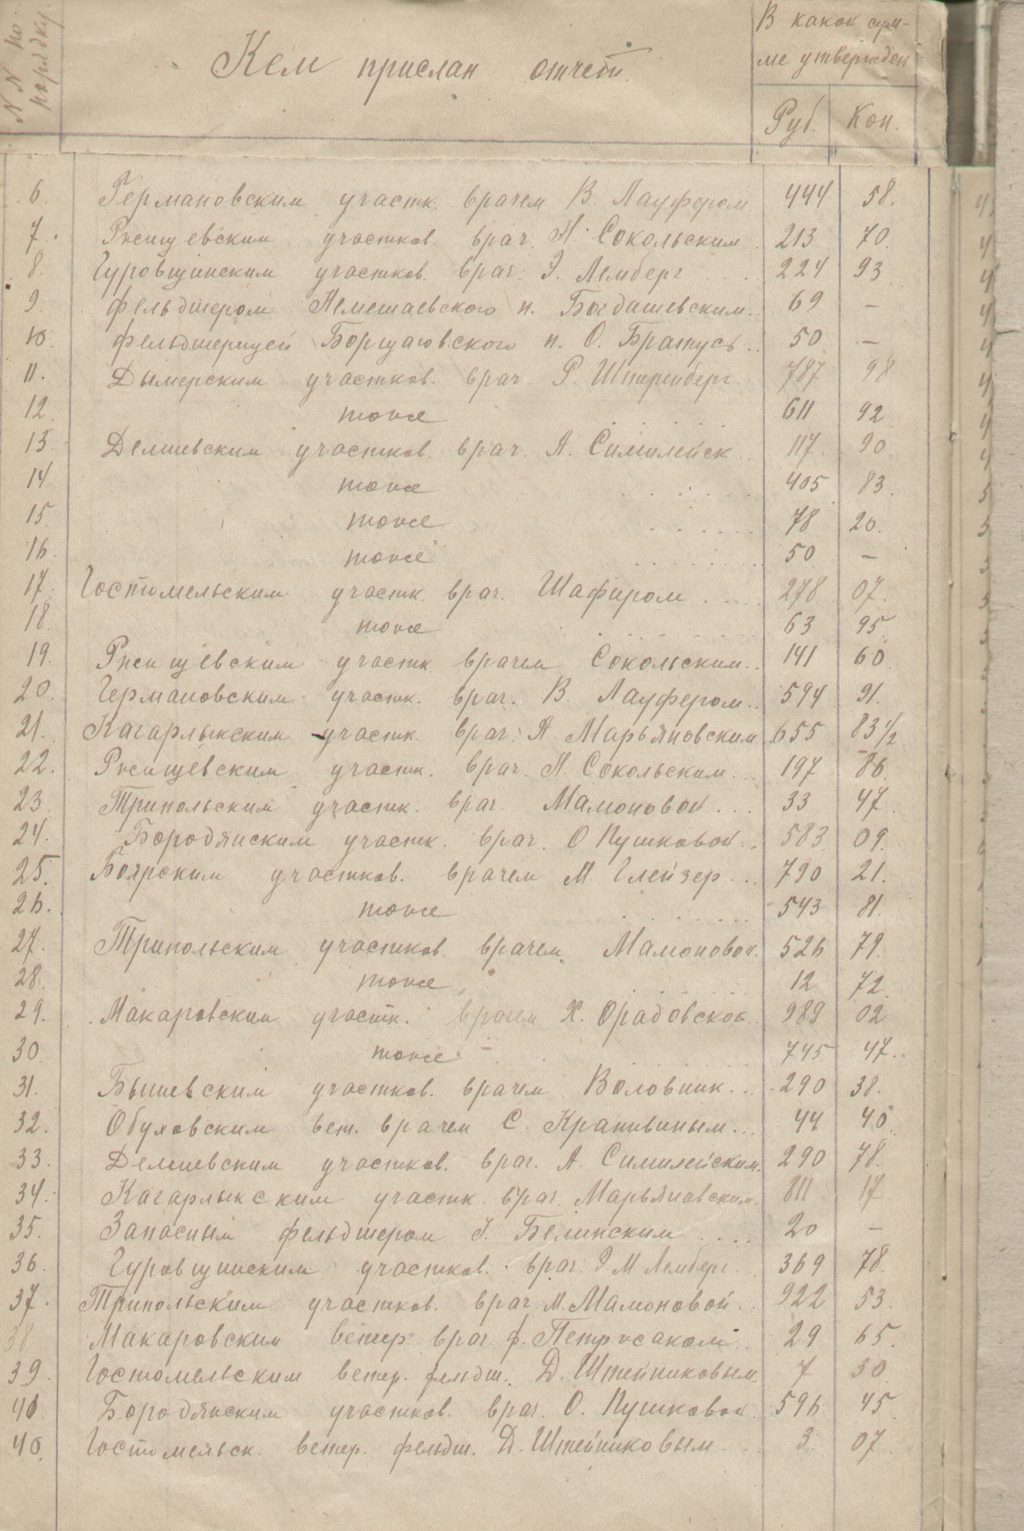 N N по порядку.
Кем прислан отчет.
В какой сум-
ме утвержден
Руб. Коп.
6. Германовским участк. врачем В. Лауфером 444 58.
7. Ржищевским участков. врач. Н. Сокольским.. 213 70.
8. Гуровщинским участков. врач. Э. Лемберг .... 224 93
9. Фельдшером Немешаевского п. Богдашевским.. 69 —
10. Фельдшерицей Борщаговского п. О. Братусь.. 50 —
11. Дымерским участков. врач. Р. Штеренберг 787 98
12. тоже 611 92.
13. Делиевским участков. врач. А. Симилейск.. 117 90
14 тоже 405 83.
15 тоже 78 20.
16. тоже 50 —
17. Гостомельским участк. врач. Шафиром .... 278 07.
18. тоже 63 95.
19. Ржищевским участк врачем Сокольским.. 141 60
20. Германовским участк. врач. В. Лауфером.. 594 91.
21. Кагарлыкским участк. врач. А. Марьяновским 655 83 1/2
22. Ржищевским участк. врач. Н. Сокольским... 197 86.
23. Трипольским участк. врач. Мамоновой ... 33 47.
24. Бородянским участк. врач. О Пушковой.. 583 09.
25. Боярским участков. врачем М. Глейзер... 790 21.
26. тоже 543 81.
27. Трипольским участков. врачем Мамоновой. 526 79.
28. тоже 12 72.
29. Макаровским участк. врачем Х. Орадовской 989 02
30 тоже 745 47..
31. Бышевским участков. врачем Воловник... 290 38.
32. Обуховским вет. врачем С. Крапивиным... 44 40.
33. Делиевским участков. врач. А. Симилейским. 290 78.
34. Кагарлыкским участк. врач. Марьяновским. 811 17
35. Запасным фельдшером I. Белинским .... 20 —
36. Гуровщинским участков. врач. Э М Лемберг 369 78.
37. Трипольским участков. врач. М. Мамоновой.. 922 53.
38 Макаровским ветер врач. Ф. 29 65.
39. Гостомельским ветер. фельдш. Д. Штейниковым 7 30.
40. Бородянским участков. врач. О. Пушковой 596 45.
40. Гостомельск. ветер. фельдш. Д. Штейниковым... 3 07.